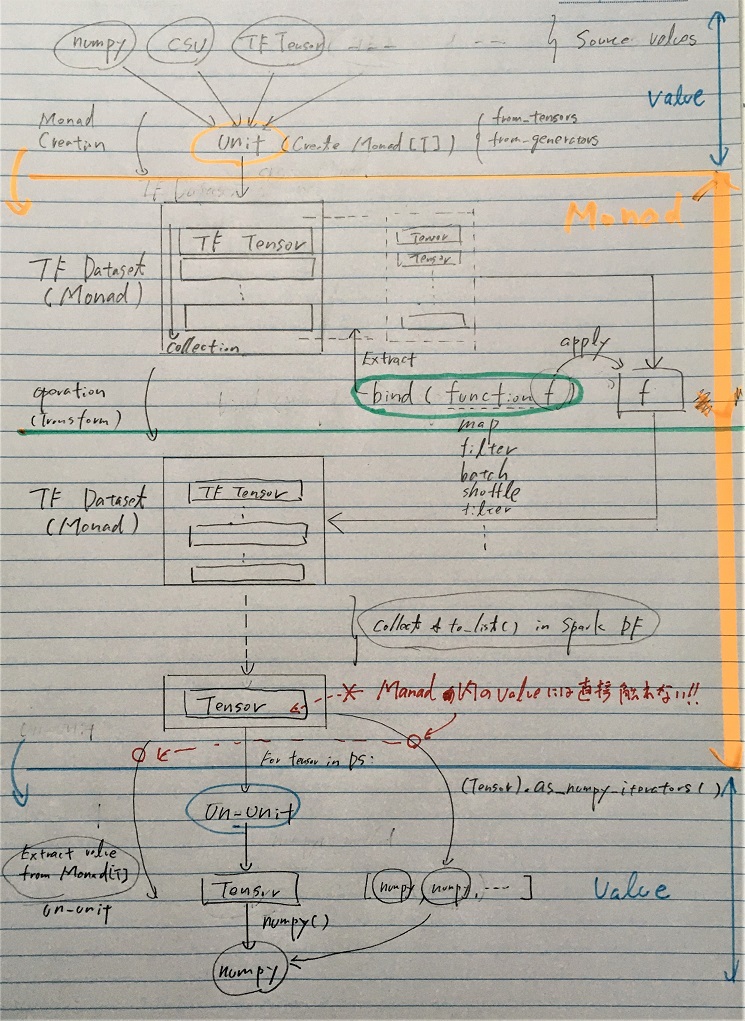 numpy CSV TF Tensor --- ---
Source values
value
Monad
Creation
Unit (Create Monad[T])
from_tensors
from_generators
Monad
TF Dataset
(Monad)
TF Tensor
Collection
Tensor
Tensor
Extract
apply
operation
(Transform)
bind (function f)
f
map
filter
batch
shuffle
filter
TF Dataset
(Monad)
TF Tensor
Collect & to_list() in Spark DF
Tensor
Manad 内のvalueには直接触れない!!
For tensor in DS:
(Tensor).as_numpy_iterators()
Un-Unit
Extract value
from Monad[T]
un-unit
Tensor
[numpy, numpy, ----]
Value
numpy()
numpy